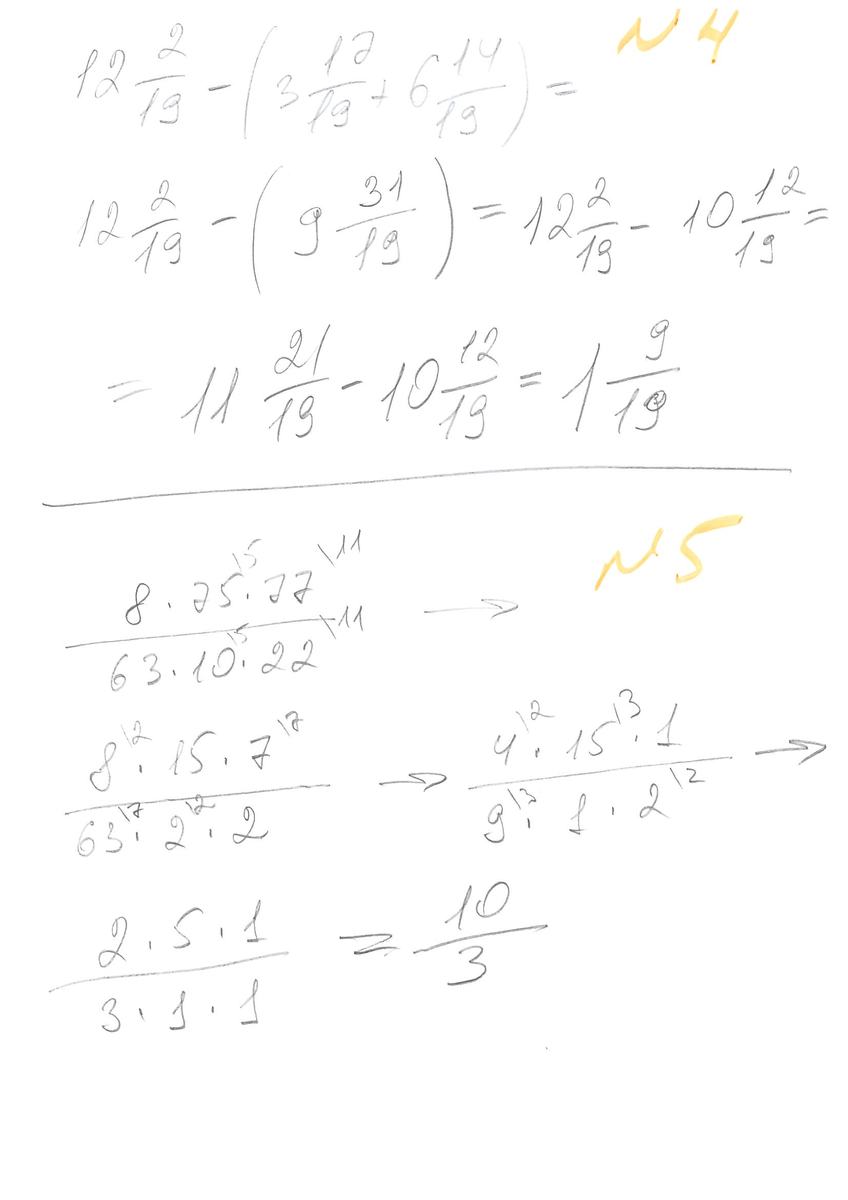 N 4
12 2/19 - (3 17/19 + 6 14/19) =
12 2/19 - (9 31/19) = 12 2/19 - 10 12/19 =
= 11 21/19 - 10 12/19 = 1 9/19
N 5
8 · 75\5 · 77\11 / 63 · 10\5 · 22\11 →
8\2 · 15 · 7\7 / 63\7 · 2\2 · 2 → 4\2 · 15\3 · 1 / 9\3 · 1 · 2\2 →
2 · 5 · 1 / 3 · 1 · 1 = 10/3